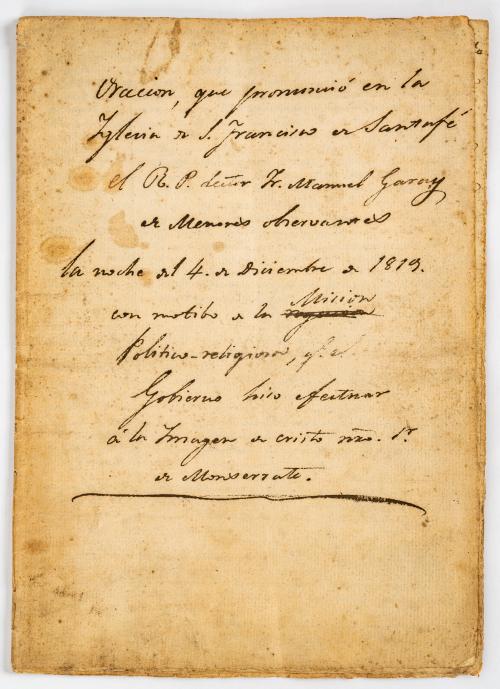 Oracion, que pronunció en la
Iglesia de S. Francisco de Santafé
el R. P. Lector Fr. Manuel Garay
de Menores observantes
la noche del 4. de Diciembre de 1819.
con motibo de la Mision
Politico-religiosa, q.e el
Gobierno hiso efectuar
á la Imagen de cristo nro. Sr.
de Monserrate.